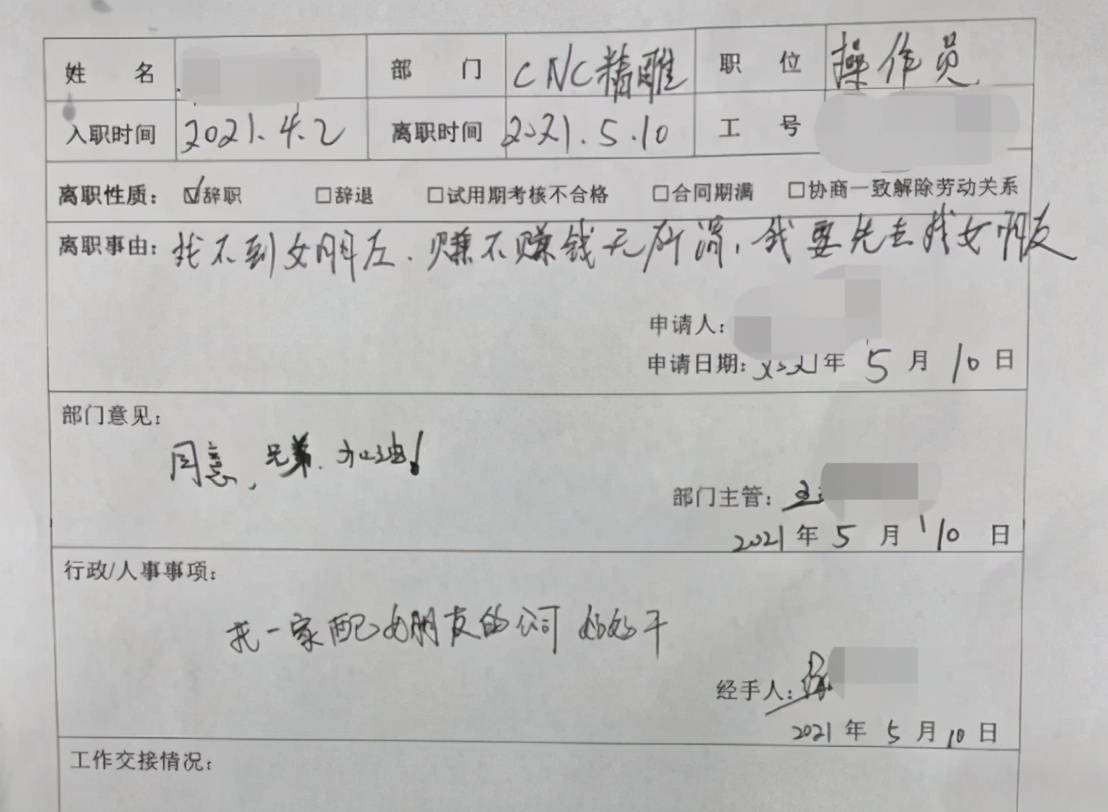 姓 名 部 门 CNC精雕 职 位 操作员
入职时间 2021.4.2 离职时间 2021.5.10 工 号
离职性质: ☑辞职 □辞退 □试用期考核不合格 □合同期满 □协商一致解除劳动关系
离职事由: 找不到女朋友.赚不赚钱无所谓,我要先去找女朋友
申请人:
申请日期: 2021年 5 月 10 日
部门意见:
同意,兄弟.加油!
部门主管: 王
2021 年 5 月 10 日
行政/人事事项:
找一家配女朋友的公司 好好干
经手人:
2021 年 5 月 10 日
工作交接情况: